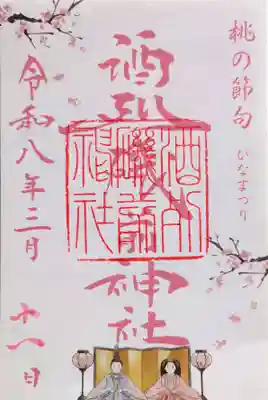 桃の節句
ひなまつり
酒列磯前神社
酒列
磯前
神社
令和八年三月
十一日